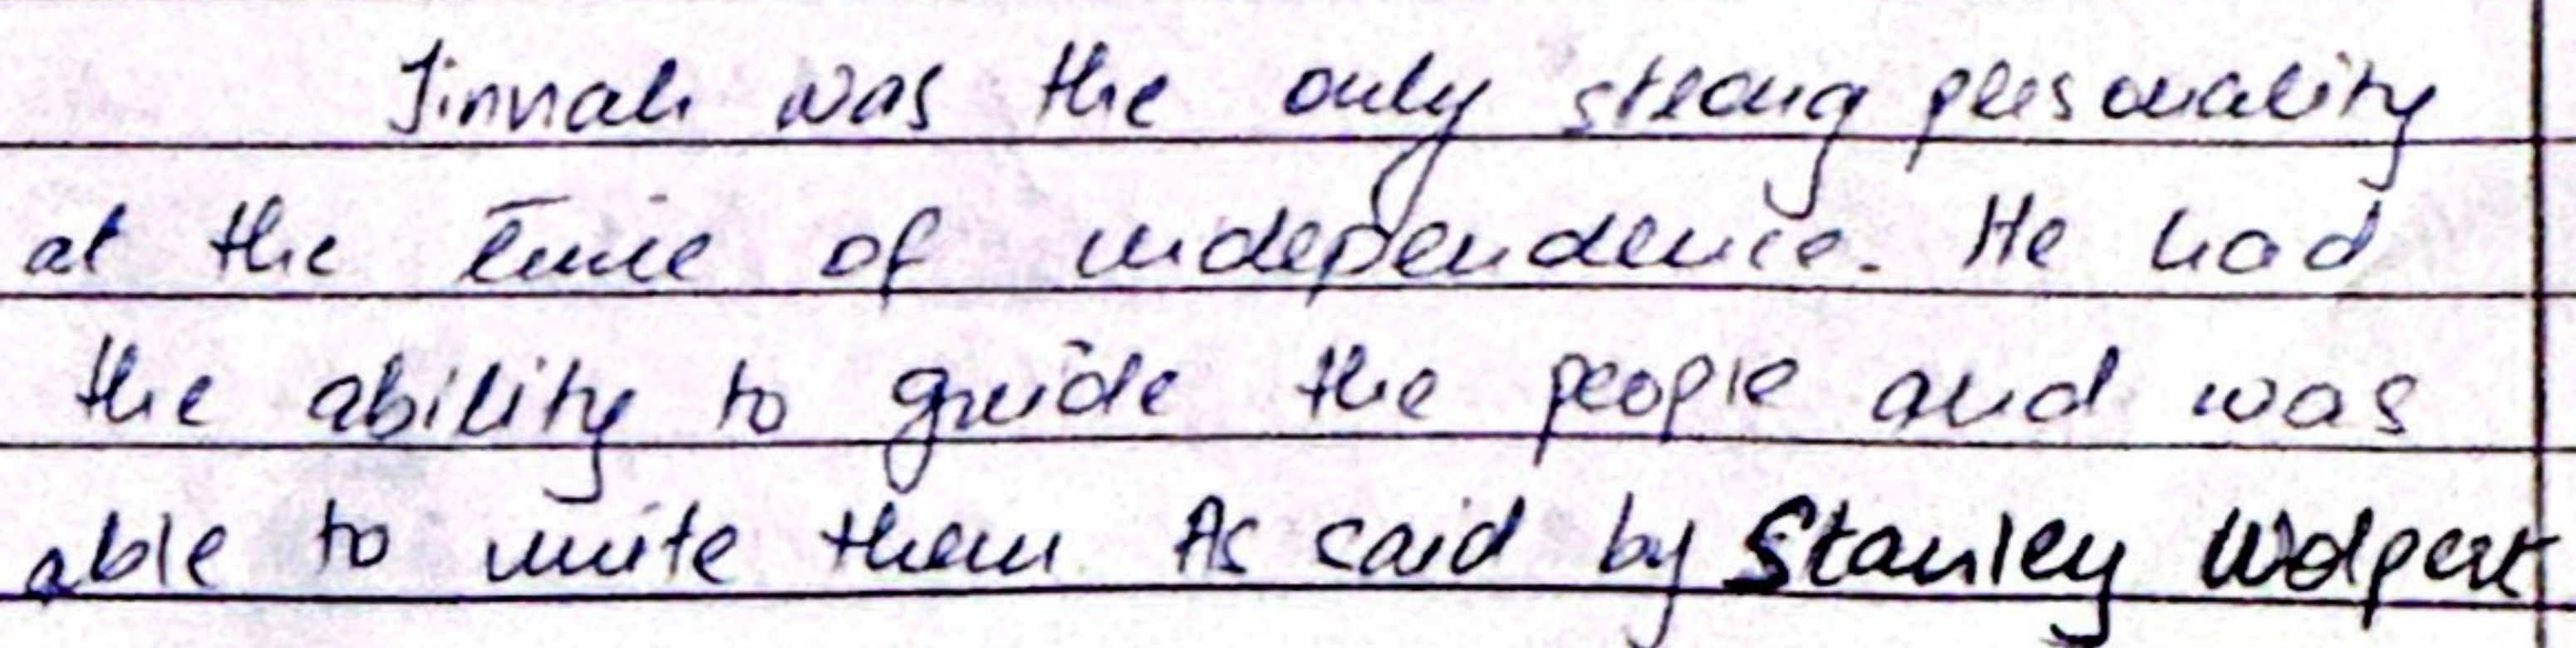 Jinnah was the only strong personality
at the time of independence. He had
the ability to guide the people and was
able to unite them. As said by Stanley Wolpert